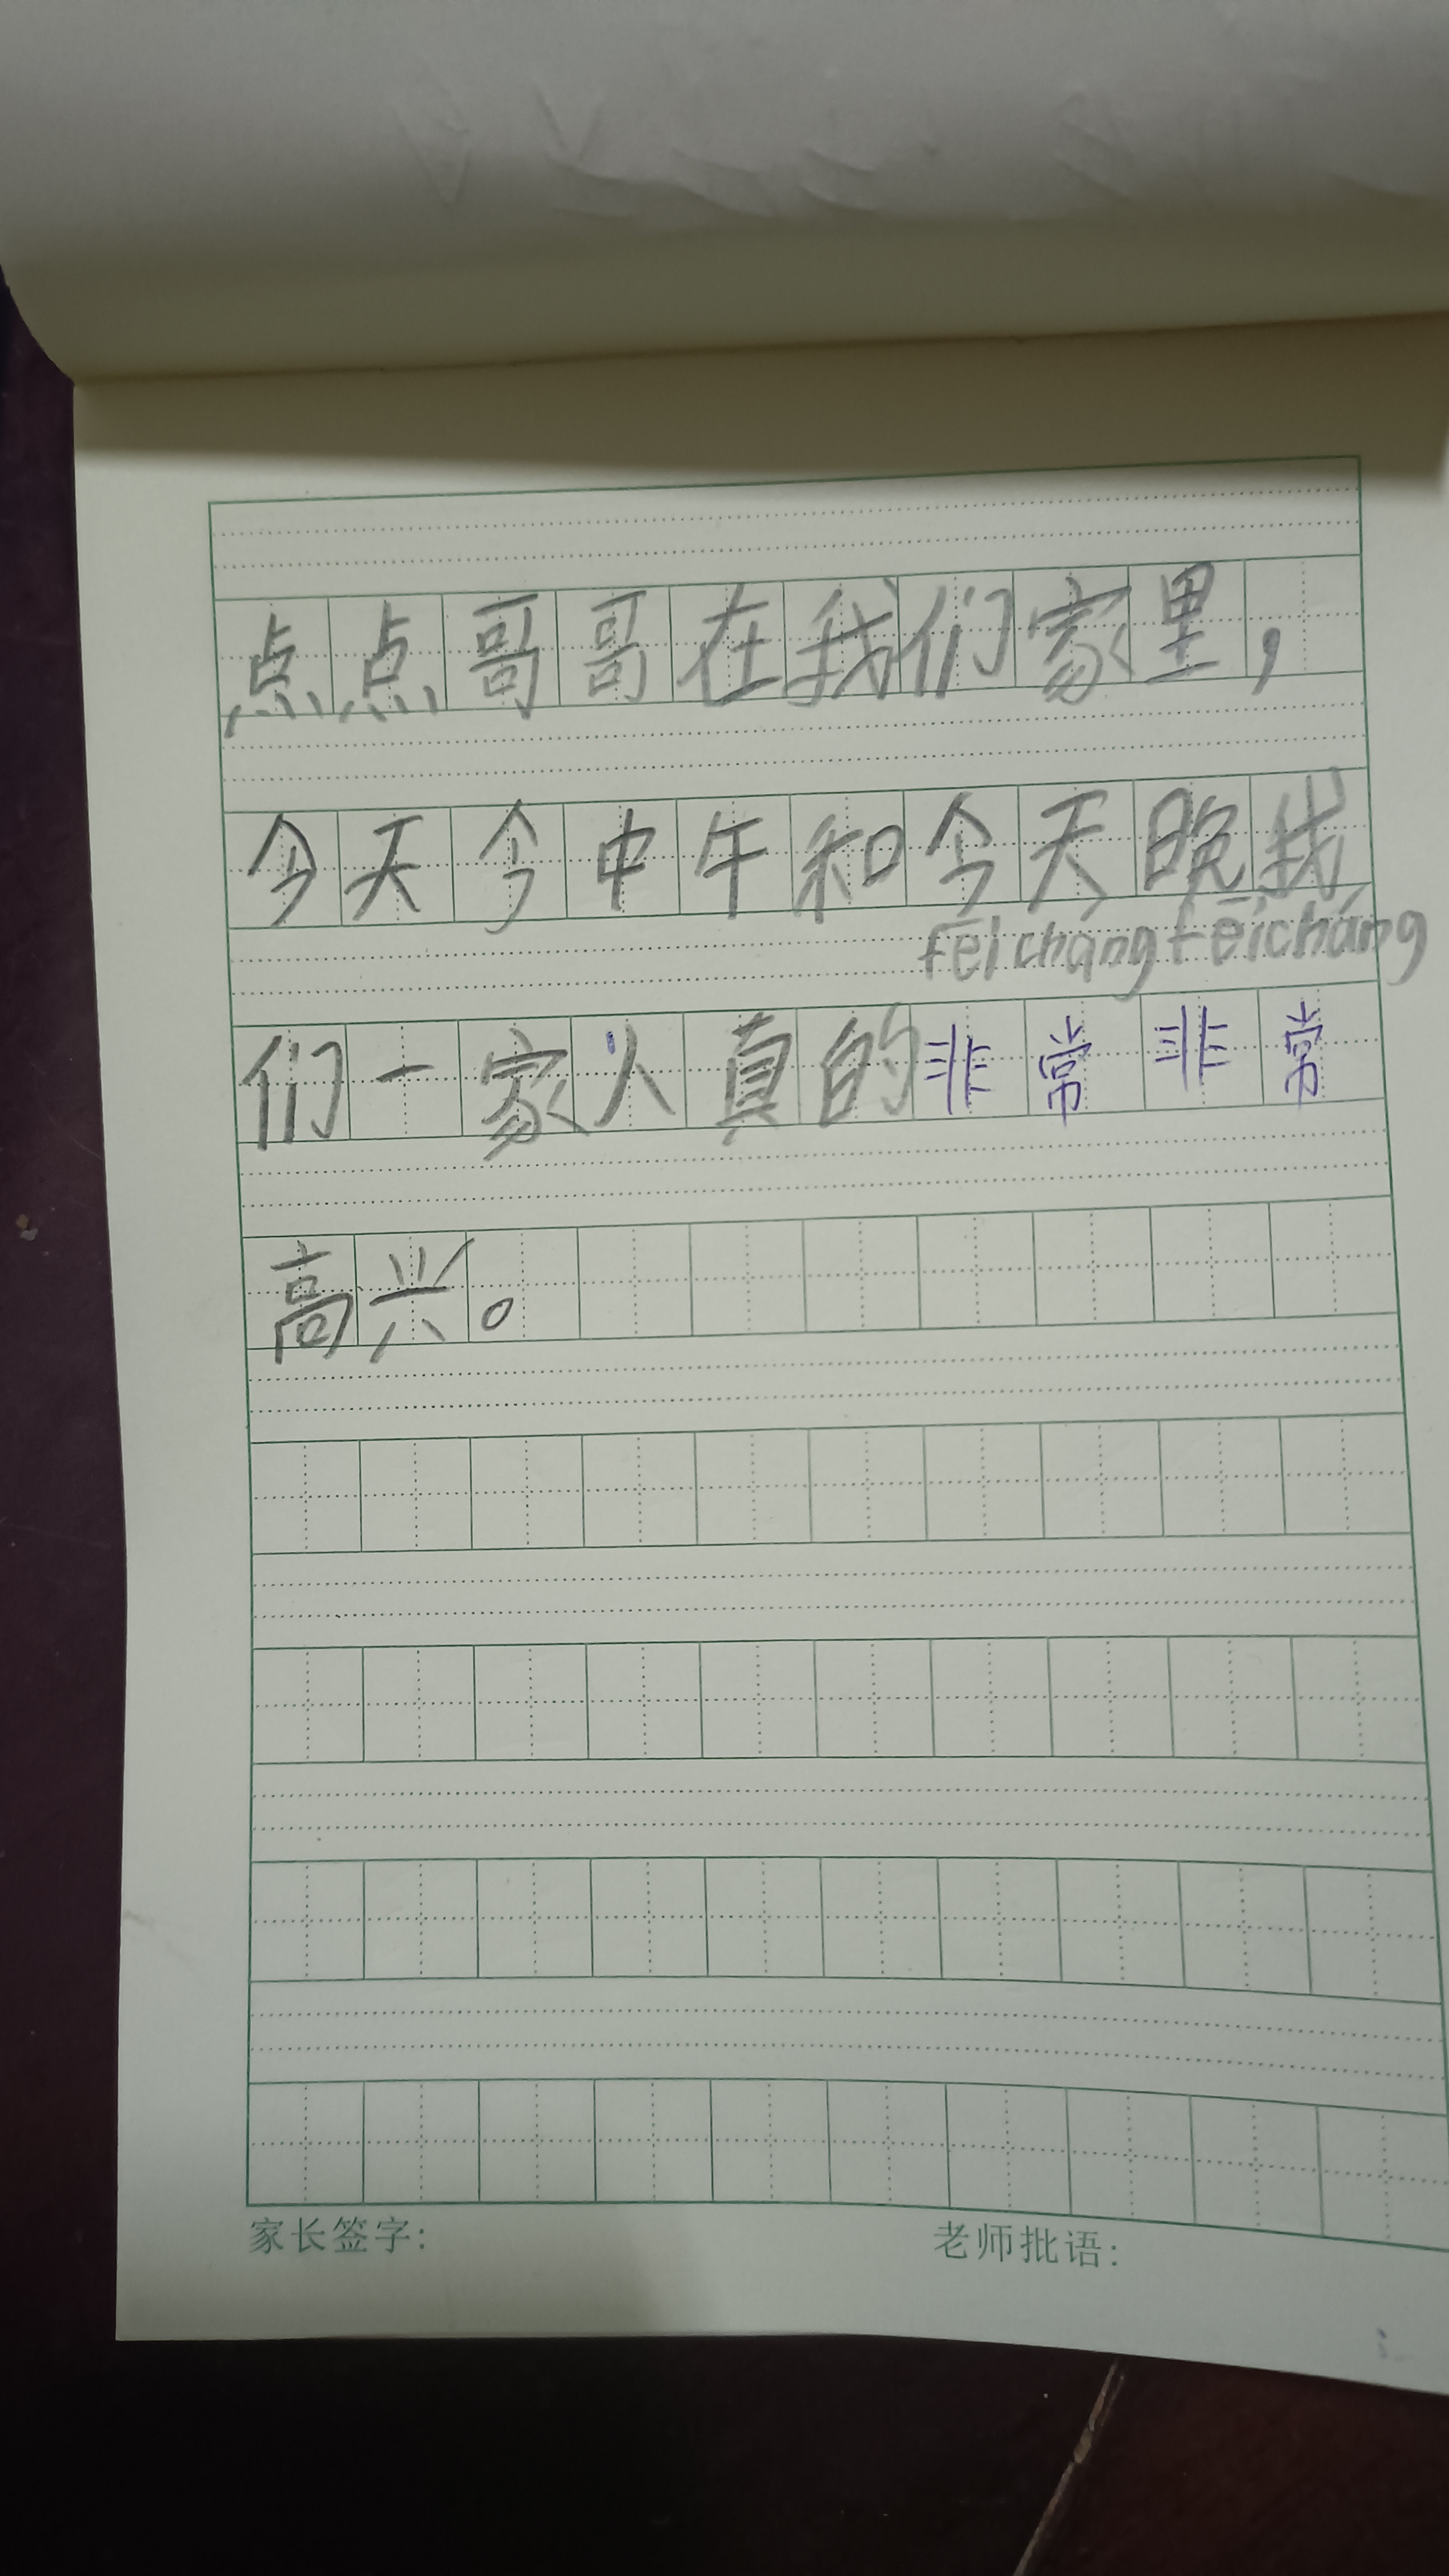 点点哥哥在我们家里，
今天今中午和今天晚我
fēi cháng fēi cháng
们一家人真的非常非常
高兴。
家长签字： 老师批语：